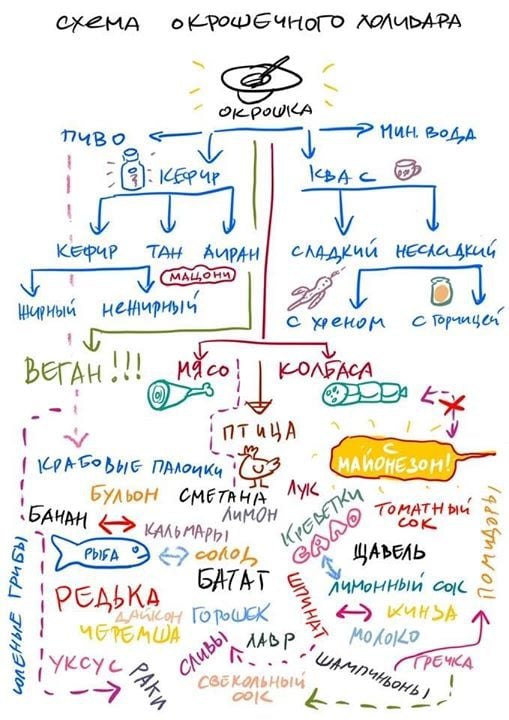 СХЕМА ОКРОШЕЧНОГО ХОЛИВАРА
ОКРОШКА
ПИВО
МИН. ВОДА
КЕФИР
КВАС
КЕФИР
ТАН
АЙРАН
СЛАДКИЙ
НЕСЛАДКИЙ
МАЦОНИ
ЖИРНЫЙ
НЕЖИРНЫЙ
С ХРЕНОМ
С ГОРЧИЦЕЙ
ВЕГАН!!!
МЯСО
КОЛБАСА
ПТИЦА
С МАЙОНЕЗОМ!
КРАБОВЫЕ ПАЛОЧКИ
БУЛЬОН
СМЕТАНА
ЛУК
БАНАН
ЛИМОН
КРЕВЕТКИ
ТОМАТНЫЙ
СОК
КАЛЬМАРЫ
САЛО
РЫБА
СОЛОД
ЩАВЕЛЬ
ПОМИДОРЫ
СОЛЕНЫЕ ГРИБЫ
БАТАТ
ЛИМОННЫЙ СОК
РЕДЬКА
ДАЙКОН
ГОРОШЕК
ШПИНАТ
КИНЗА
ЧЕРЕМША
ЛАВР
МОЛОКО
СЛИВЫ
УКСУС
РАКИ
ШАМПИНЬОНЫ
ГРЕЧКА
СВЕКОЛЬНЫЙ
СОК